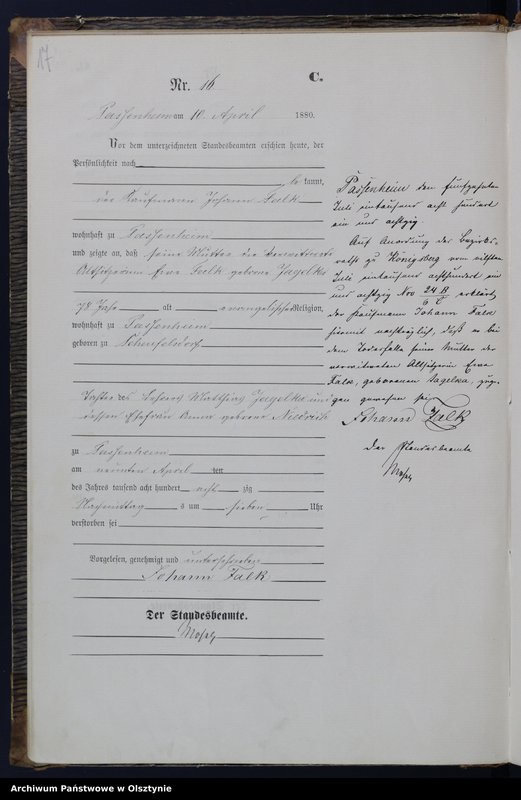 17
Nr. 16
C.
Passenheim am 10 April 1880.
Vor dem unterzeichneten Standesbeamten erschien heute, der
Persönlichkeit nach
be kannt,
der Kaufmann Johann Falk
wohnhaft zu Passenheim
und zeigte an, daß seine Mutter die verwittwete
Altsitzerin Eva Falk geborne Jagelka
78 Jahr alt evangelischer Religion,
wohnhaft zu Passenheim
geboren zu
Tochter des Matthis Jagelka und
dessen Ehefrau Anna geborne
zu Passenheim
am neunten April ten
des Jahres tausend acht hundert acht zig
Nachmittag s um sieben Uhr
verstorben sei
Vorgelesen, genehmigt und unterschrieben
Johann Falk
Der Standesbeamte.
Passenheim den fünfzehnten
Juli eintausend acht hundert
ein und achtzig.
Auf Anordnung des Bezirks-
raths zu Königsberg vom elften
Juli eintausend achthundert ein
und achtzig No 24 B erklärt
der Kaufmann Johann Falk
hiermit nachträglich, daß er bei
dem Todesfalle seiner Mutter der
verwittweten Altsitzerin Eva
Falk, geborenen Jagelka, zuge-
gen gewesen sei
Johann Falk
Der Standesbeamte
Archiwum Państwowe w Olsztynie